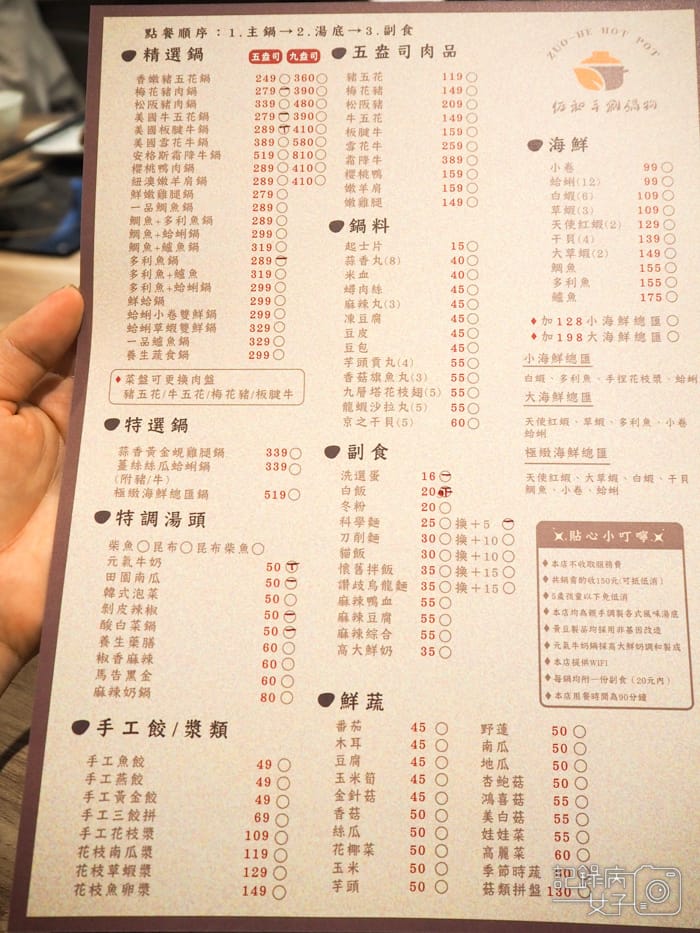 點餐順序：1.主鍋→2.湯底→3.副食
精選鍋 五盎司 九盎司
香嫩豬五花鍋 249 360
梅花豬肉鍋 279 390
松阪豬肉鍋 339 480
美國牛五花鍋 279 390
美國板腱牛鍋 289 410
美國雪花牛鍋 389 580
安格斯霜降牛鍋 519 810
櫻桃鴨肉鍋 289 410
紐澳嫩羊肩鍋 289 410
鮮嫩雞腿鍋 279
一品鯛魚鍋 289
鯛魚+多利魚鍋 289
鯛魚+蛤蜊鍋 299
鯛魚+鱸魚鍋 319
多利魚鍋 289
多利魚+鱸魚 319
多利魚+蛤蜊鍋 299
鮮蛤鍋 299
蛤蜊小卷雙鮮鍋 299
蛤蜊草蝦雙鮮鍋 329
一品鱸魚鍋 329
養生蔬食鍋 299
菜盤可更換肉盤
豬五花/牛五花/梅花豬/板腱牛
特選鍋
蒜香黃金蜆雞腿鍋 339
薑絲絲瓜蛤蜊鍋 339
(附豬/牛)
極緻海鮮總匯鍋 519
特調湯頭
柴魚 昆布 昆布柴魚
元氣牛奶 50
田園南瓜 50
韓式泡菜 50
剝皮辣椒 50
酸白菜鍋 50
養生藥膳 60
椒香麻辣 60
馬告黑金 60
麻辣奶鍋 80
手工餃/漿類
手工魚餃 49
手工燕餃 49
手工黃金餃 49
手工三餃拼 69
手工花枝漿 109
花枝南瓜漿 119
花枝草蝦漿 129
花枝魚卵漿 149
五盎司肉品
豬五花 119
梅花豬 149
松阪豬 209
牛五花 149
板腱牛 159
雪花牛 259
霜降牛 389
櫻桃鴨 159
嫩羊肩 159
嫩雞腿 149
鍋料
起士片 15
蒜香丸(8) 40
米血 40
蟳肉絲 45
麻辣丸(3) 45
凍豆腐 45
豆皮 45
豆包 45
芋頭貢丸(4) 55
香菇旗魚丸(3) 55
九層塔花枝翅(5) 55
龍蝦沙拉丸(5) 55
京之干貝(5) 60
副食
洗選蛋 16
白飯 20
冬粉 20
科學麵 25 換+5
刀削麵 30 換+10
貓飯 30 換+10
懷舊拌飯 35 換+15
讚歧烏龍麵 35 換+15
麻辣鴨血 55
麻辣豆腐 55
麻辣綜合 55
高大鮮奶 35
鮮蔬
番茄 45
木耳 45
豆腐 45
玉米筍 45
金針菇 45
香菇 50
絲瓜 50
花椰菜 50
玉米 50
芋頭 50
野蓮 50
南瓜 50
地瓜 50
杏鮑菇 50
鴻喜菇 55
美白菇 55
娃娃菜 55
高麗菜 60
季節時蔬
菇類拼盤 130
ZUO-HE HOT POT
佐和手創鍋物
海鮮
小卷 99
蛤蜊(12) 99
白蝦(6) 109
草蝦(3) 109
天使紅蝦(2) 129
干貝(4) 139
大草蝦(2) 149
鯛魚 155
多利魚 155
鱸魚 175
加128小海鮮總匯
加198大海鮮總匯
小海鮮總匯
白蝦、多利魚、手捏花枝漿、蛤蜊
大海鮮總匯
天使紅蝦、草蝦、多利魚、小卷
蛤蜊
極緻海鮮總匯
天使紅蝦、大草蝦、白蝦、干貝
鯛魚、小卷、蛤蜊
貼心小叮嚀
本店不收取服務費
共鍋需酌收150元(可抵低消)
5歲孩童以下免低消
本店均為親手調製各式風味湯底
黃豆製品均採用非基因改造
元氣牛奶鍋採高大鮮奶調和製成
本店提供WIFI
每鍋均附一份副食(20元內)
本店用餐時間為90分鐘
記錄病
女子